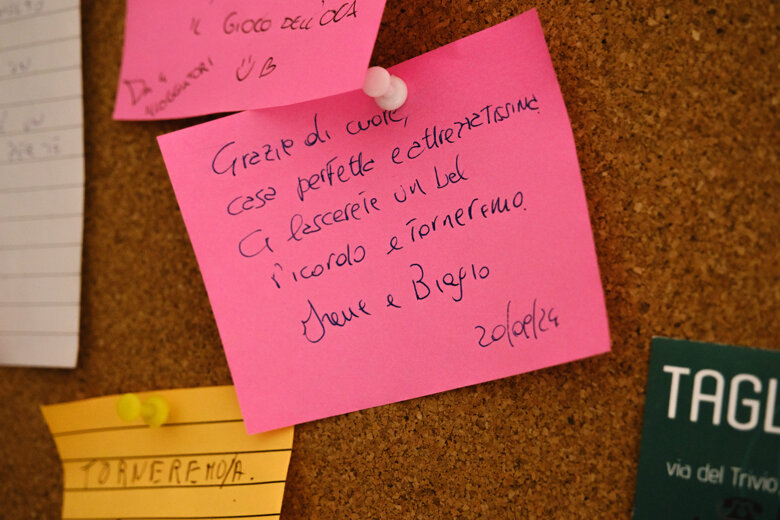 IL GIOCO DELL'OCA
DA 4
VIAGGIATORI
Grazie di cuore,
casa perfetta e attrezzatissima
Ci lascerete un bel
ricordo e torneremo.
Irene e Biagio
20/09/24
TORNEREMO/A.
TAGL
via del Trivio